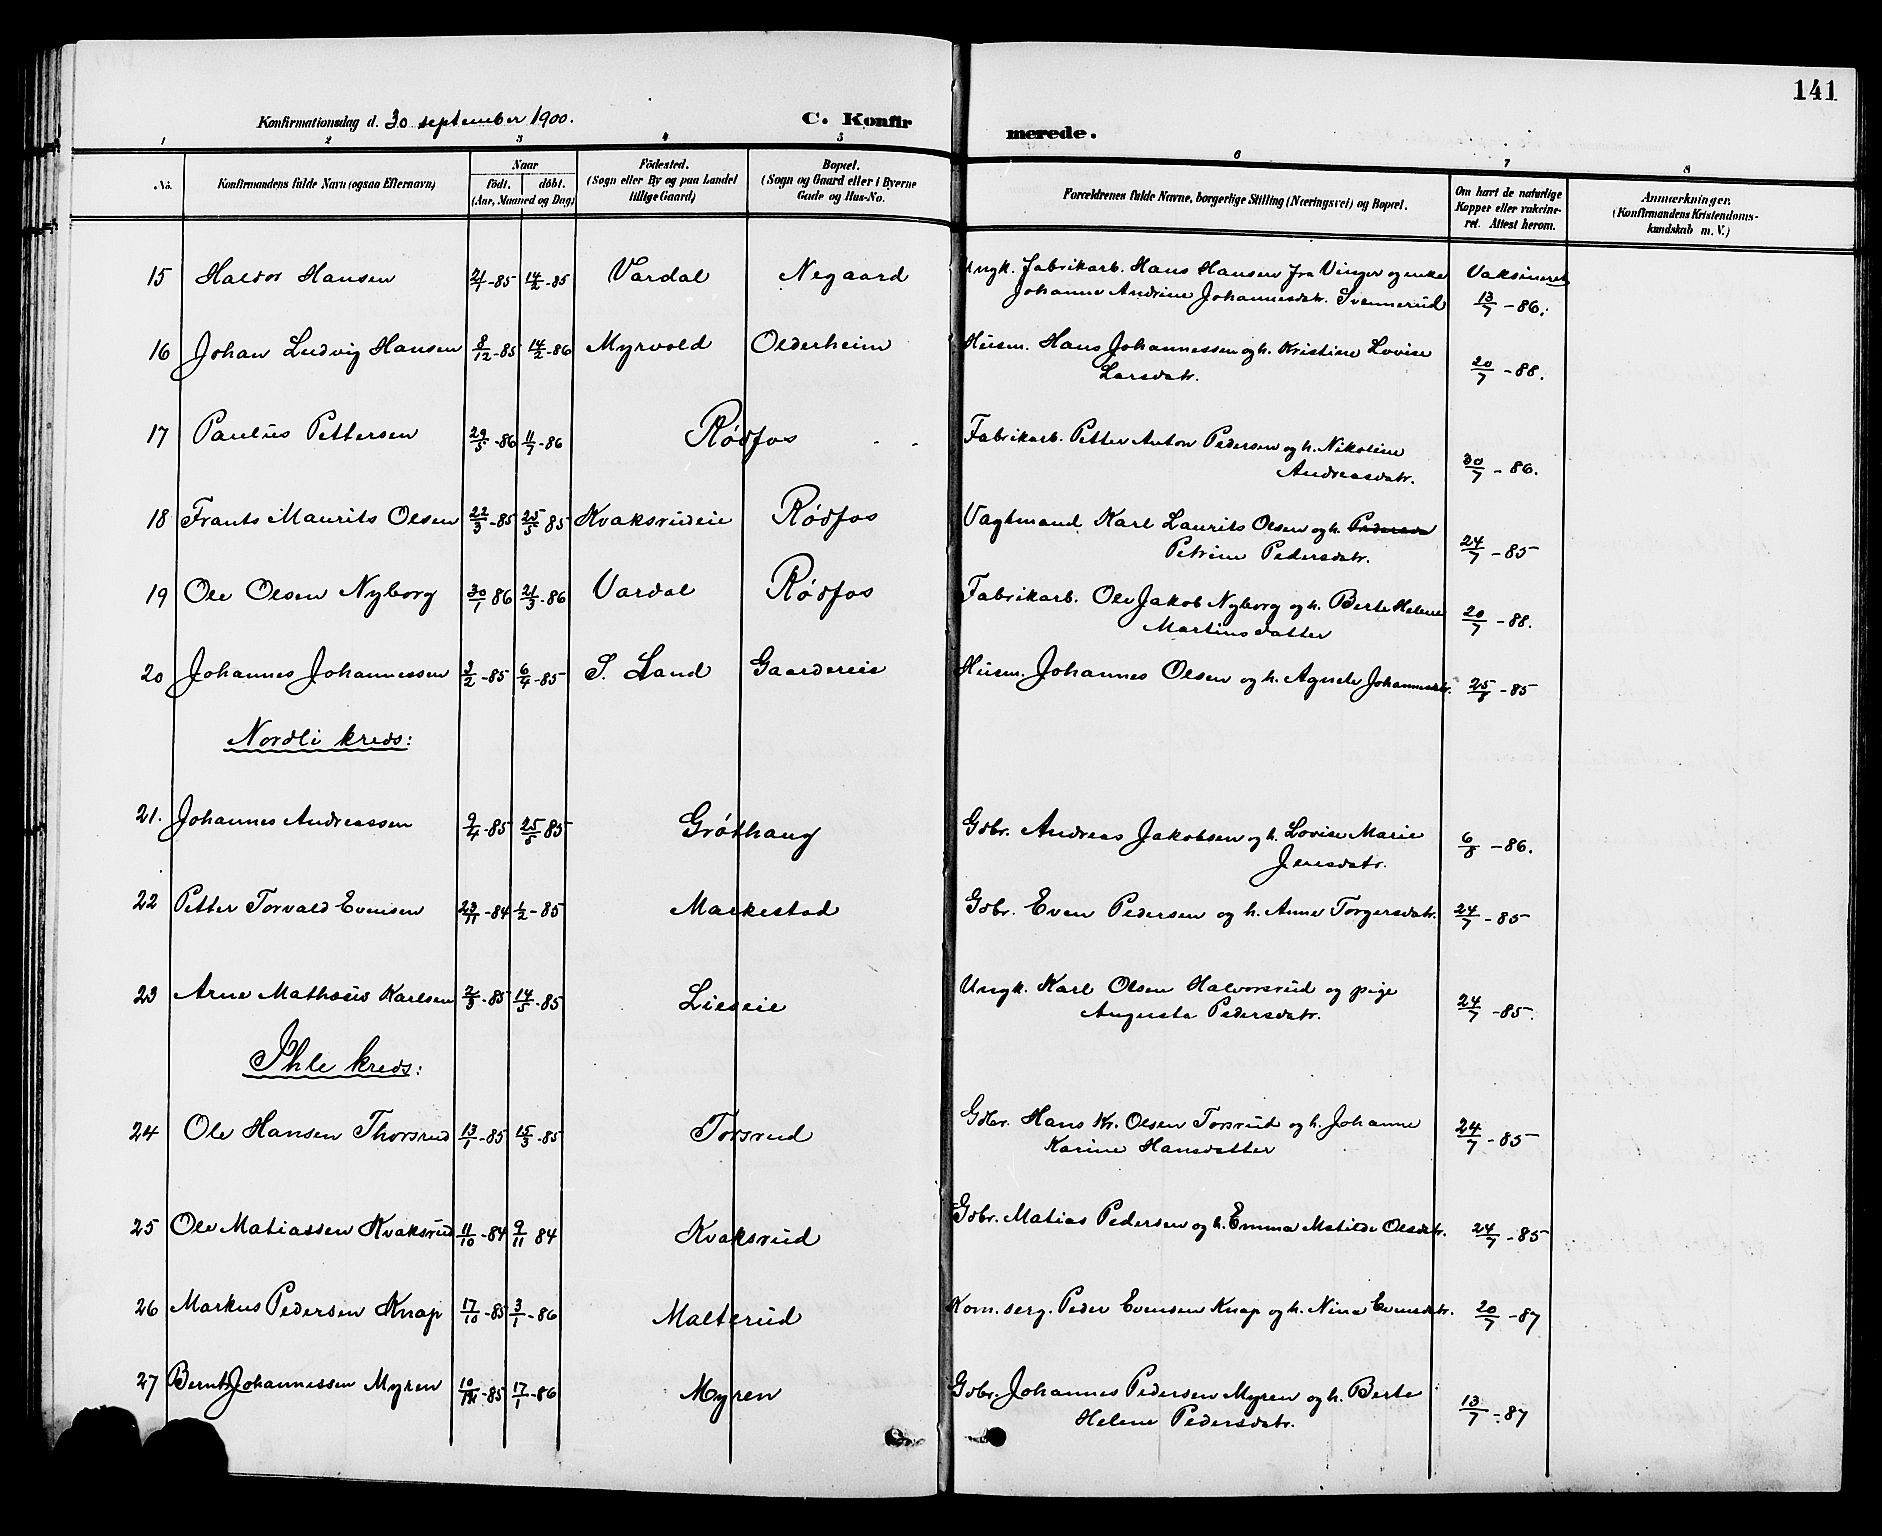 141
Konfirmationsdag d. 30 september 1900. C. Konfirmerede.
1 2 3 4 5 6 7 8
No. Konfirmandens fulde Navn (ogsaa Efternavn) Naar født. døbt. (Aar, Maaned og Dag) Fødested. (Sogn eller By og paa Landet tillige Gaard) Bopæl. (Sogn og Gaard eller i Byerne Gade og Hus-No. Forældrenes fulde Navne, borgerlige Stilling (Næringsvei) og Bopæl. Om havt de naturlige Kopper eller vakcineret. Attest herom. Anmærkninger. (Konfirmandens Kristendomskundskab m. V.)
15 Haldor Hansen 21/1-85 14/2-85 Vardal Negaard Ungk. fabrikarb. Hans Hansen fra Vinger og enke Vaksineret
Johanne Andrine Johannesdtr. Svennerud 13/7-86.
16 Johan Ludvig Hansen 8/12-85 14/2-86 Myrvold Olderheim Husm. Hans Johannessen og h. Kristine Lovise
Larsdatr. 20/7-88.
17 Paulus Pettersen 29/5-86 11/7-86 Rødfos Fabrikarb. Petter Anton Pedersen og h. Nikoline
Andreasdatr. 30/7-86.
18 Frants Maurits Olsen 22/3-85 25/5 85 Kvaksrudeie Rødfos Vagtmand Karl Laurits Olsen og h.
Petrine Pedersdatr. 24/7-85
19 Ole Olsen Nyborg 30/1 86 21/3-86 Vardal Rødfos Fabrikarb. Ole Jakob Nyborg og h. Berte Helene
Martinsdatter 20/7-88.
20 Johannes Johannessen 3/2-85 6/4-85 S. Land Gaardereie Husm. Johannes Olsen og h. Agnete Johannesdtr. 25/8-85
Nordli kreds:
21. Johannes Andreassen 9/4-85 25/5 85 Grøthaug Gbr. Andreas Jakobsen og h. Lovise Marie
Jensdatr. 6/8-86.
22 Petter Torvald Evensen 23/11-84 1/2-85 Markestad Gbr. Even Pedersen og h. Anne Torgersdatr. 24/7-85
23 Arne Mathæus Karlsen 2/3-85 14/5-85 Lieseie Ungk. Karl Olsen Halvorsrud og pige
Augusta Pedersdatr. 24/7-85.
Ihle kreds:
24 Ole Hansen Thorsrud 13/1-85 15/3-85 Torsrud Gbr. Hans Kr. Olsen Torsrud og h. Johanne
Karine Hansdatter 24/7-85
25 Ole Matiassen Kvaksrud 11/10-84 9/11 84 Kvaksrud Gbr. Matias Pedersen og h. Emma Matilde Olsdtr. 24/7-85
26 Markus Pedersen Knap 17/10-85 3/1-86 Malterud Kom. serg. Peder Evensen Knap og h. Nina Evensdatr. 20/7-87
27 Bernt Johannessen Myren 10/12-85 17/1-86 Myren Gbr. Johannes Pedersen Myren og h. Berte
Helene Pedersdatr. 13/7-87